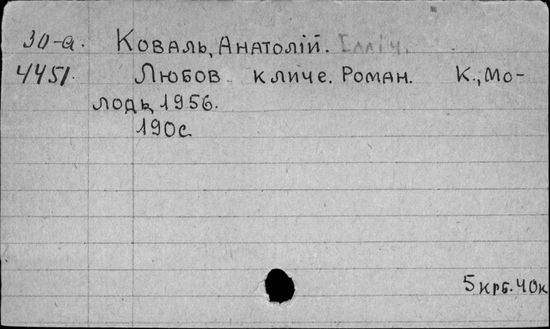 30-а. Коваль, Анатолій. Ілліч.
4451. Любов кличе. Роман. К., Мо-
лодь, 1956.
190с.
5крб.40к